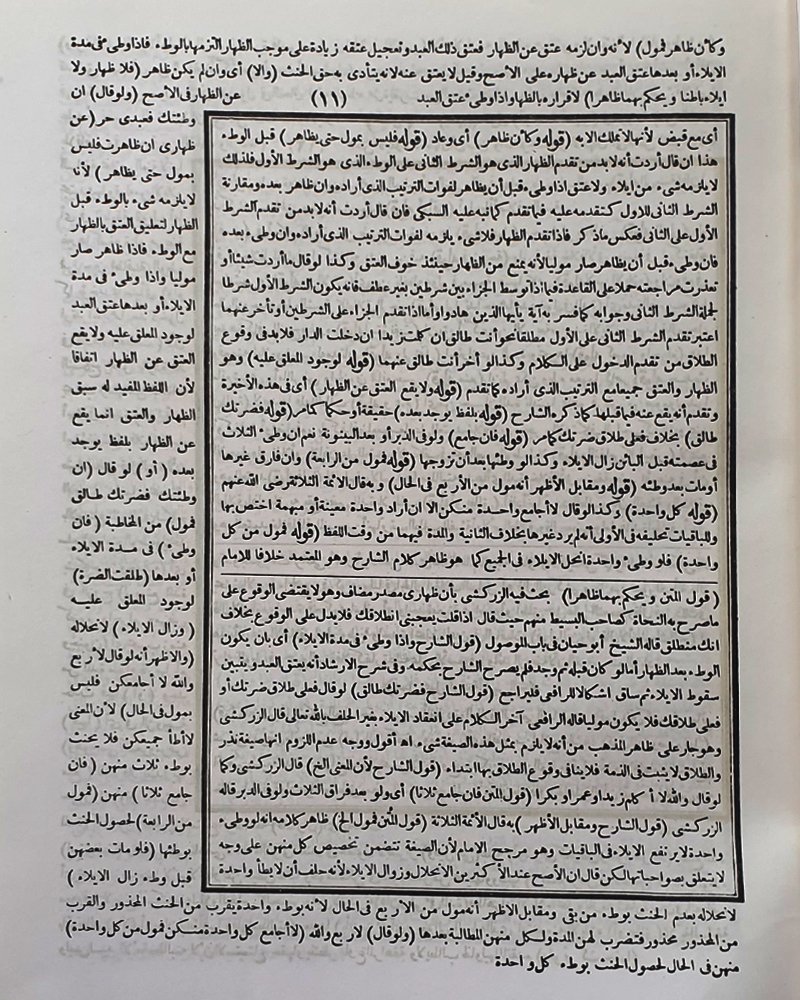 وكأن ظاهر فمول) لأنه وان لزمه عتق عن الظهار فعتق ذلك العبد وتعجيل عتقه زيادة على موجب الظهار التزمها بالوطء فاذا وطئ فى مدة
الايلاء أو بعدها عتق العبد عن ظهاره على الأصح وقيل لا يعتق عنه لانه يتأدى به حق الحنث (والا) أى وان لم يكن ظاهر (فلا ظهار ولا
ايلاء باطنا ويحكم بهما ظاهرا) لاقراره بالظهار واذا وطئ عتق العبد (١١) عن الظهار فى الأصح (ولو قال) ان
وطئتك فعبدى حر (عن
ظهارى ان ظاهرت فليس
بمول حتى يظاهر) لأنا
لا يلزمه شىء بالوطء قبل
الظهار لتعليق العتق بالظهار
مع الوطء فاذا ظاهر صار
موليا واذا وطئ فى مدة
الايلاء أو بعدها عتق العبد
لوجود المعلق عليه ولا يقع
العتق عن الظهار اتفاقا
لأن اللفظ المفيد له سبق
الظهار والعتق انما يقع
عن الظهار بلفظ يوجد
بعده (أو) لو قال (ان
وطئتك فضرتك طالق
فمول) من المخاطبة (فان
وطئ) فى مدة الايلاء
أو بعدها (طلقت الضرة)
لوجود المعلق عليه
(وزال الايلاء) لانحلاله
(والاظهر أنه لو قال لأربع
والله لا أجامعكن فليس
بمول فى الحال) لأن المعنى
لا أطأ جميعكن فلا يحنث
بوطء ثلاث منهن (فان
جامع ثلاثا) منهن (فمول
من الرابعة) لحصول الحنث
بوطئها (فلو مات بعضهن
قبل وطء زال الايلاء)
أى مع قبض لأنها لا تملك الا به (قوله وكأن ظاهر) أى وعاد (قوله فليس بمول حتى يظاهر) قبل الوطء
هذا ان قال أردت أنه لا بد من تقدم الظهار الذى هو الشرط الثانى على الوطء الذى هو الشرط الأول فلذلك
لا يلزمه شىء من ايلاء ولا عتق اذا وطئ قبل أن يظاهر لفوات الترتيب الذى أراده وان ظاهر بعده ومقارنة
الشرط الثانى للاول كتقدمه عليه فيما تقدم كما نبه عليه السبكى فان قال أردت أنه لا بد من تقدم الشرط
الأول على الثانى فعكس ما ذكر فاذا تقدم الظهار فلا شىء يلزمه لفوات الترتيب الذى أراده وان وطئ بعده
فان وطئ قبل أن يظاهر صار موليا لأنه يمنع من الظهار حينئذ خوف العتق وكذا لو قال ما أردت شيئا أو
تعذرت مراجعته حملا على القاعدة فيما اذا توسط الجزاء بين شرطين بغير عطف فانه يكون الشرط الأول شرطا
لجملة الشرط الثانى وجوابه كما فسر به آية يأيها الذين هادوا وأما اذا تقدم الجزاء على الشرطين أو تأخر عنهما
اعتبر تقدم الشرط الثانى على الأول مطلقا نحو أنت طالق ان كلمت زيدا ان دخلت الدار فلا بد فى وقوع
الطلاق من تقدم الدخول على الكلام وكذا لو أخر أنت طالق عنهما (قوله لوجود المعلق عليه) وهو
الظهار والعتق جميعا مع الترتيب الذى أراده كما تقدم (قوله ولا يقع العتق عن الظهار) أى فى هذه الأخيرة
وتقدم أنه يقع عنه فيما قبلها كما ذكره الشارح (قوله بلفظ يوجد بعده) حقيقة أو حكما كما مر (قوله فضرتك
طالق) بخلاف فعلى طلاق ضرتك كما مر (قوله فان جامع) ولو فى الدبر أو بعد البينونة نعم ان وطئ الثلاث
فى عصمته قبل البائن زال الايلاء وكذا لو وطئها بعد أن تزوجها (قوله فمول من الرابعة) وان فارق غيرها
أو مات بعد وطئه (قوله ومقابل الأظهر أنه مول من الأربع فى الحال) وبه قال الائمة الثلاثة رضى الله عنهم
(قوله كل واحدة) وكذا لو قال لا أجامع واحدة منكن الا ان أراد واحدة معينة أو مبهمة اختص بها
وللباقيات تحليفه فى الأولى أنه لم يرد غيرها بخلاف الثانية والمدة فيهما من وقت اللفظ (قوله فمول من كل
واحدة) فلو وطئ واحدة انحل الايلاء فى الجميع كما هو ظاهر كلام الشارح وهو المعتمد خلافا للامام
(قول المتن ويحكم بهما ظاهرا) بحث فيه الزركشى بأن ظهارى مصدر مضاف وهو لا يقتضى الوقوع على
ما صرح به النحاة كصاحب البسيط منهم حيث قال اذا قلت يعجبنى انطلاقك فلا يدل على الوقوع بخلاف
انك منطلق قاله الشيخ أبو حيان فى باب الموصول (قول الشارح واذا وطئ فى مدة الايلاء) أى بان يكون
الوطء بعد الظهار أما لو كان قبله ثم وجد فلم يصرح الشارح بحكمه وفى شرح الارشاد أنه يعتق العبد ويتبين
سقوط الايلاء ثم ساق اشكالا للرافعى فليراجع (قول الشارح فضرتك طالق) لو قال فعلى طلاق ضرتك أو
فعلى طلاقك فلا يكون موليا قاله الرافعى آخر الكلام على انعقاد الايلاء بغير الحلف بالله تعالى قال الزركشى
وهو جار على ظاهر المذهب من أنه لا يلزم بمثل هذه الصيغة شىء اه أقول ووجه عدم اللزوم انها صيغة نذر
والطلاق لا يثبت فى الذمة فلا ينافى وقوع الطلاق بها ابتداء (قول الشارح لأن المعنى الخ) قال الزركشى وكما
لو قال والله لا أكلم زيدا وعمرا وبكرا (قول المتن فان جامع ثلاثا) أى ولو بعد فراق الثلاث ولو فى الدبر قاله
الزركشى (قول الشارح ومقابل الأظهر) به قال الأئمة الثلاثة (قول المتن فمول الخ) ظاهر كلامه انه لو وطئ
واحدة لا يرتفع الايلاء فى الباقيات وهو مرجح الامام لأن الصيغة تتضمن تخصيص كل منهن على وجه
لا يتعلق بصواحباتها لكن قال ان الأصح عند الأكثرين الانحلال وزوال الايلاء لأنه حلف أن لا يطأ واحدة
لانحلاله بعدم الحنث بوطء من بقى ومقابل الاظهر أنه مول من الأربع فى الحال لأنه بوطء واحدة يقرب من الحنث المحذور والقرب
من المحذور محذور فتضرب لهن المدة ولكل منهن المطالبة بعدها (ولو قال) لاربع والله (لا أجامع كل واحدة منكن فمول من كل واحدة)
منهن فى الحال لحصول الحنث بوطء كل واحدة